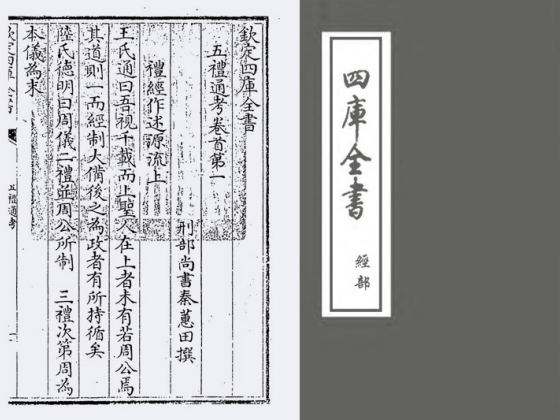 欽定四庫全書
五禮通考卷首第一
刑部尚書秦蕙田撰
禮經作述源流上
王氏通曰吾視千載而上聖人在上者未有若周公焉
其道則一而經制大備後之為政者有所持循矣
陸氏德明曰周儀二禮並周公所制 三禮次第周為
本儀為末
五禮通考
四庫全書
經部